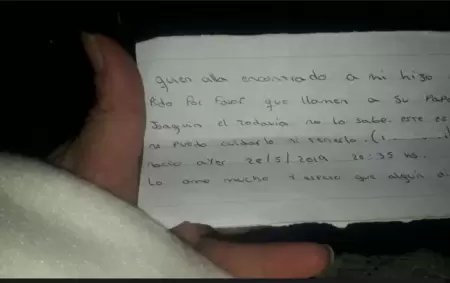 quien alla encontrado a mi hijo
Pido Por Favor que llamen a su Papa
Joaquin el todavia no lo sabe. este es
no puedo cuidarlo ni tenerlo. (1
nacio ayer 20/5/2019 20:35 hs.
Lo amo mucho y espero que algun